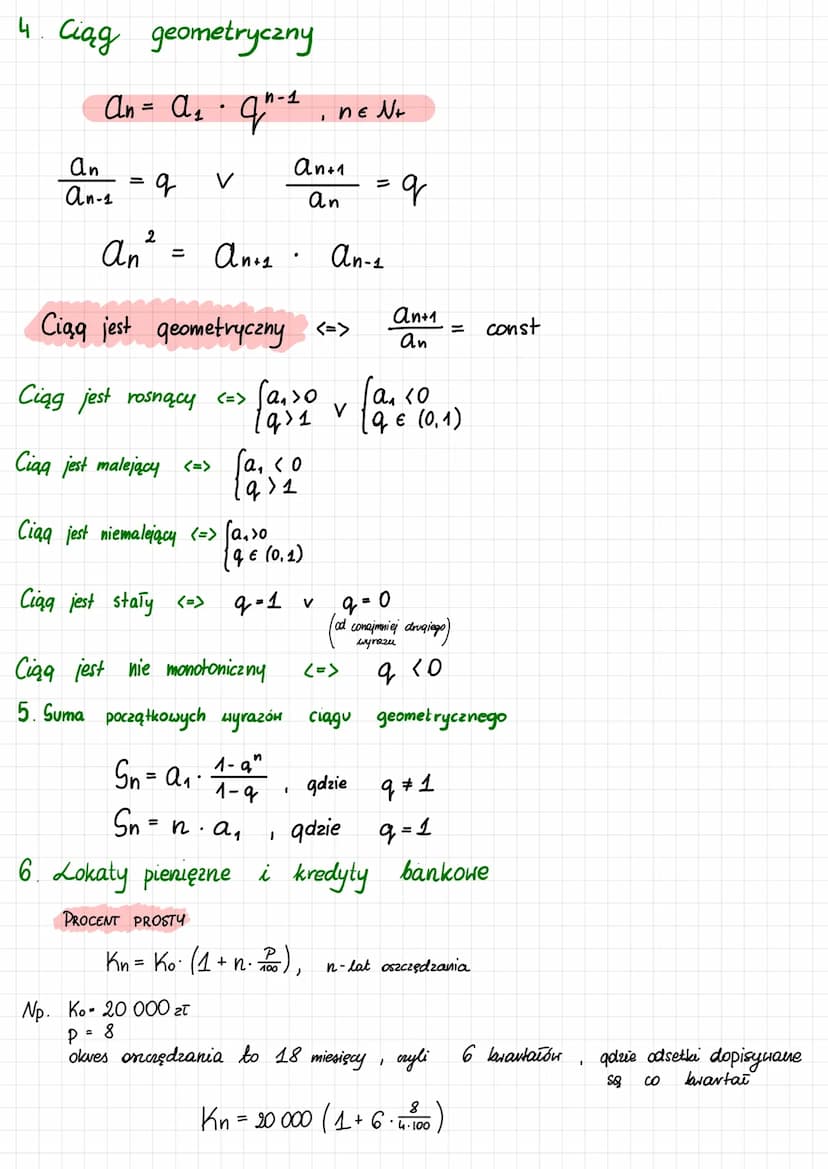 4. Ciąg geometryczny
an = a₁ · qⁿ⁻¹, n ∈ N₊
an / an-1 = q ∨ an+1 / an = q
an² = an+1 · an-1
Ciąg jest geometryczny <=> an+1 / an = const
Ciąg jest rosnący <=> { a₁ > 0 q > 1 ∨ { a₁ < 0 q ∈ (0,1)
Ciąg jest malejący <=> { a₁ < 0 q > 1
Ciąg jest niemalejący <=> { a₁ > 0 q ∈ (0,1)
Ciąg jest stały <=> q = 1 ∨ q = 0
(od conajmniej drugiego wyrazu)
Ciąg jest nie monotoniczny <=> q < 0
5. Suma początkowych wyrazów ciągu geometrycznego
Sn = a₁ · (1 - qⁿ) / (1 - q), gdzie q ≠ 1
Sn = n · a₁, gdzie q = 1
6. Lokaty pieniężne i kredyty bankowe
PROCENT PROSTY
Kn = K₀ · (1 + n · p/100), n-lat oszczędzania
Np. K₀ = 20 000 zł
p = 8
okres oszczędzania to 18 miesięcy, czyli 6 kwartałów, gdzie odsetki dopisywane
są co kwartał
Kn = 20 000 (1 + 6 · 8/4·100)